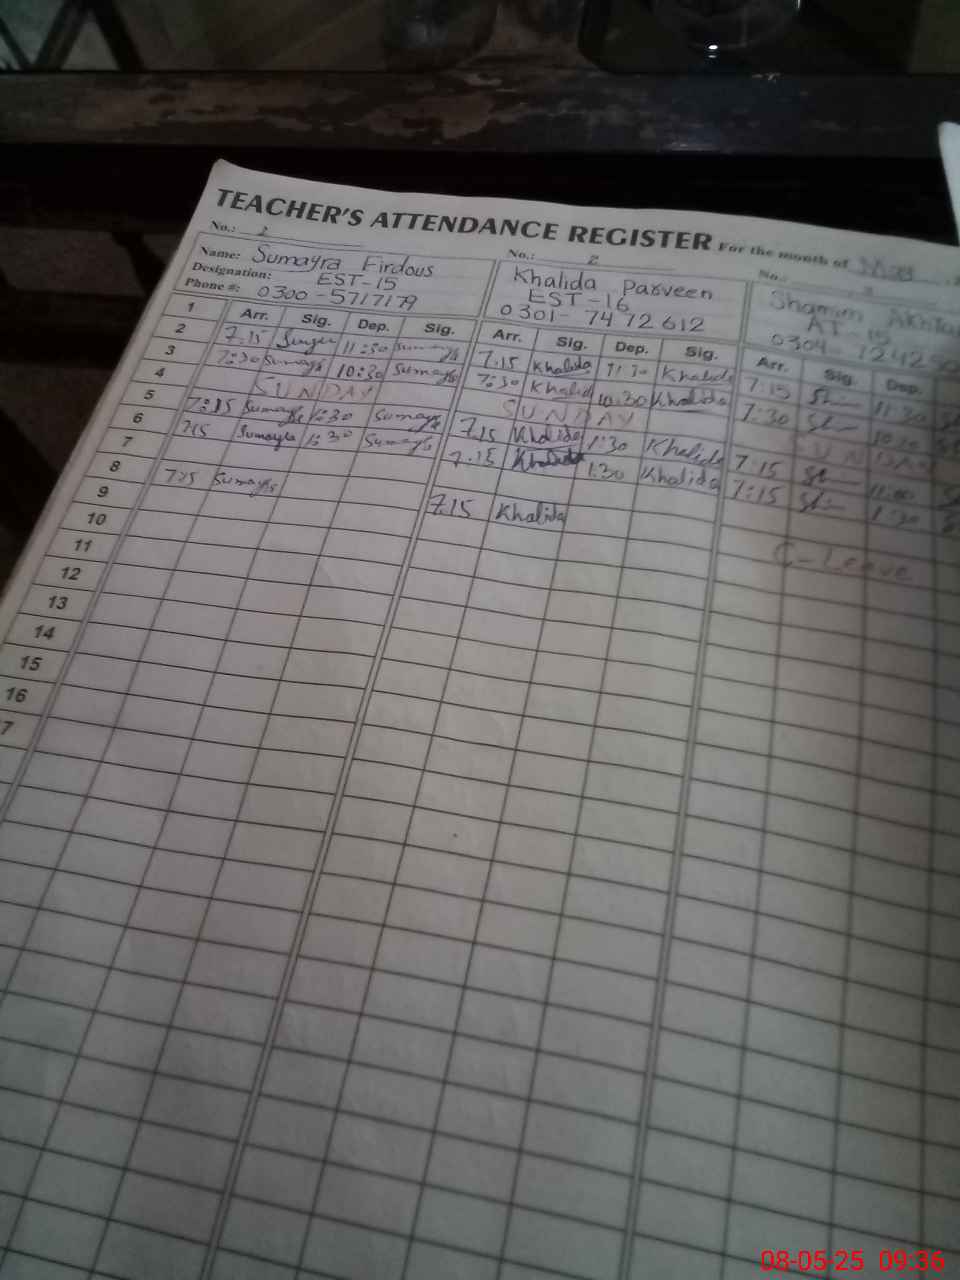 TEACHER'S ATTENDANCE REGISTER For the month of May
No.: 1 No.: 2 No.:
Name: Sumayra Firdous Khalida Parveen Shamim
Designation: EST-15 EST-16 AT 15
Phone #: 0300-5717179 0301-7472612 0304
1 Arr. Sig. Dep. Sig. Arr. Sig. Dep. Sig. Arr. Sig. Dep.
2 7.15 11:30 7.15 Khalida 11:30 Khalida 7:15 11:30
3 7:30 Sumayra 10:30 Sumayra 7:30 Khalida 10:30 Khalida 7:30
4 SUNDAY SUNDAY SUNDAY
5 7:15 Sumayra 1:30 Sumayra 7.15 Khalida 1:30 Khalida 7:15
6 7.15 Sumayra 1:30 Sumayra 7.15 Khalida 1:30 Khalida 7:15 1:30
7
8 7.15 Sumayra 7.15 Khalida C-Leave
9
10
11
12
13
14
15
16
7
08-05-25 09:36